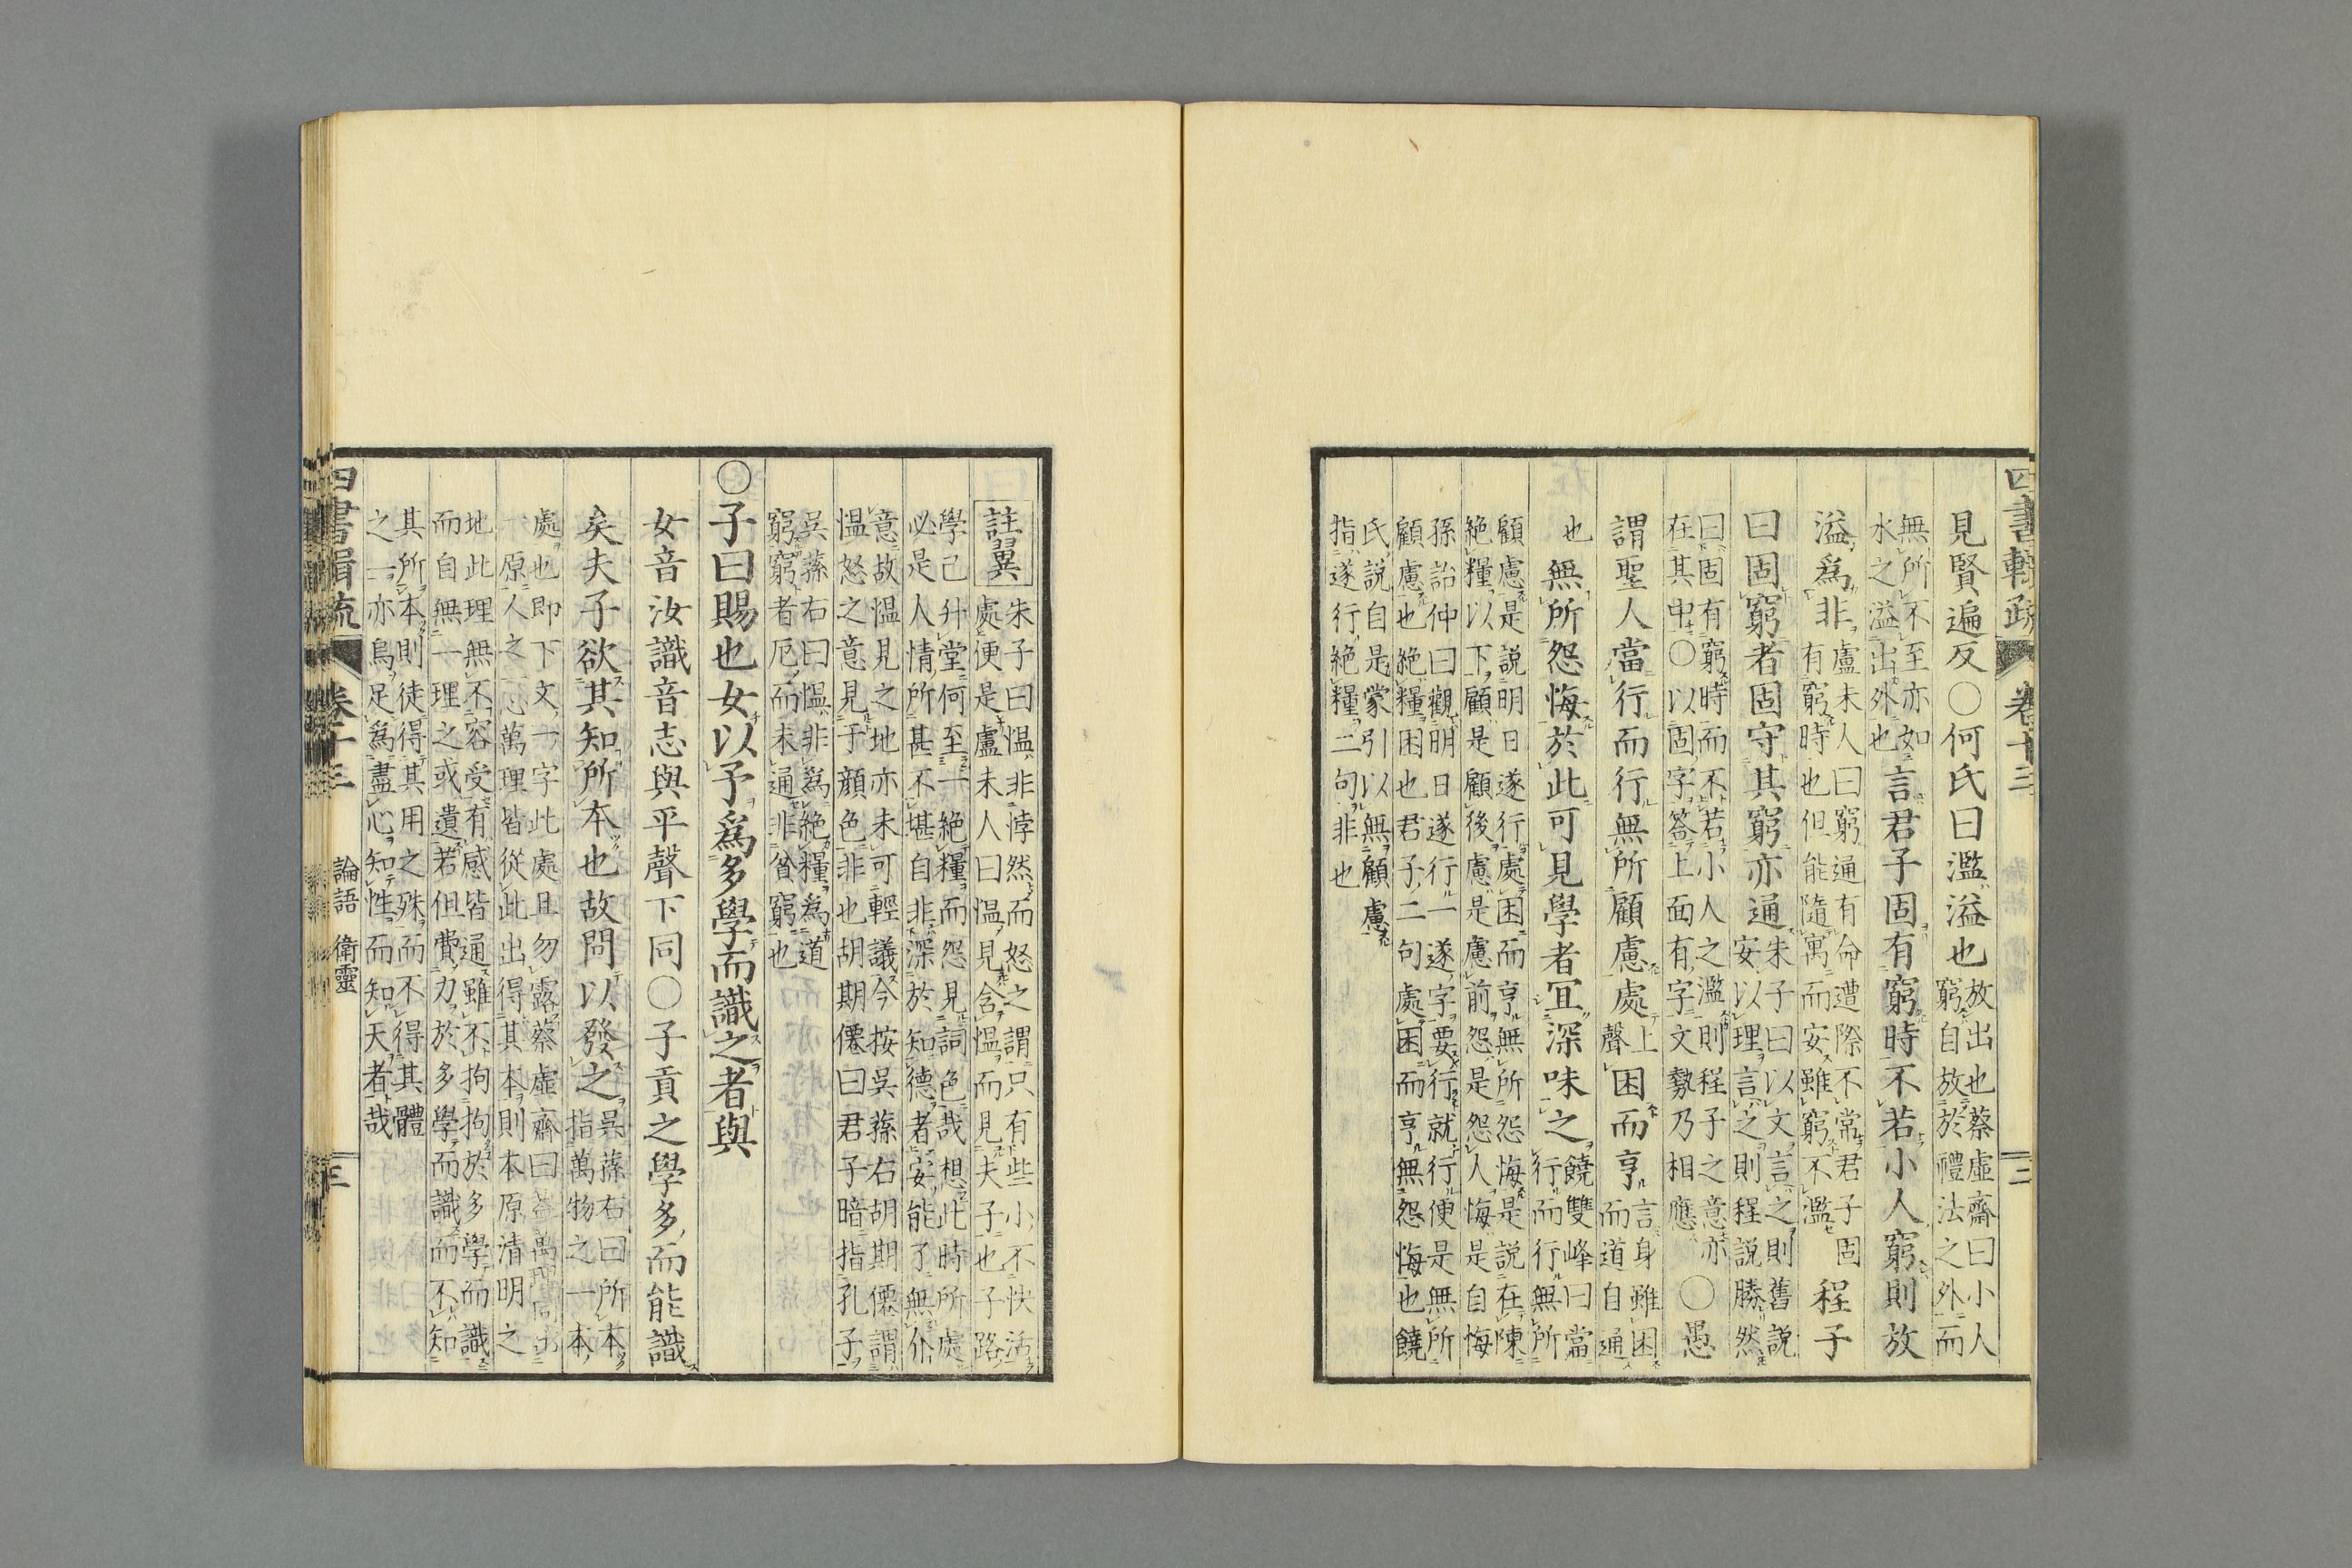 四書輯疏 卷十三 二
見賢遍反○何氏曰濫溢也
放出也蔡虛齋曰小人
窮自放於禮法之外而
無所不至亦如
水之溢出外也
言君子固有窮時不若小人窮則放
溢爲非
盧未人曰窮通有命遭際不常君子固
有窮時也但能隨寓而安雖窮不濫
程子
曰固窮者固守其窮亦通
朱子曰以文言之則舊說
安以理言之則程說勝然
曰固有窮時而不若小人之濫則程子之意亦
在其中○以固字答上面有字文勢乃相應
○愚
謂聖人當行而行無所顧慮
處
上
聲
困而亨
言身雖困
而道自通
也
無所怨悔於此可見學者宜深味之
饒雙峰曰當
行而行無所
顧慮是說明日遂行處困而亨無所怨悔是說在陳
絶糧以下顧是顧後慮是慮前怨是怨人悔是自悔
孫詒仲曰觀明日遂行一遂字要行就行便是無所
顧慮也絶糧困也君子二句處困而亨無怨悔也饒
氏說自是蒙引以無顧慮
指遂行絶糧二句非也
註翼
朱子曰慍非悖然而怒之謂只有些小不快活
處便是盧未人曰慍見含慍而見夫子也子路
學己升堂何至一絶糧而怨見詞色哉想此時所處
必是人情所甚不堪自非深於知德者安能了無仆
意故慍見之地亦未可輕議今按吳蓀右胡期僊謂
慍怒之意見于顔色非也胡期僊曰君子暗指孔子
吳蓀右曰慍非爲絶糧爲道
窮窮者厄而未通非貧窮也
○子曰賜也女以予爲多學而識之者與
女音汝識音志與平聲下同○子貢之學多而能識
矣夫子欲其知所本也故問以發之
吳蓀右曰所本
指萬物之一本
處也即下文一字此處且勿露蔡虛齋曰
原人之心萬理皆從此出得其本則本原清明之
地此理無不容受有感皆通雖不拘拘於多學而識
而自無一理之或遺若但費力於多學而識而不知
其所本則徒得其用之殊而不得其體
之一亦烏足爲盡心知性而知天者哉
四書輯疏 卷十三 論語 衛靈 三